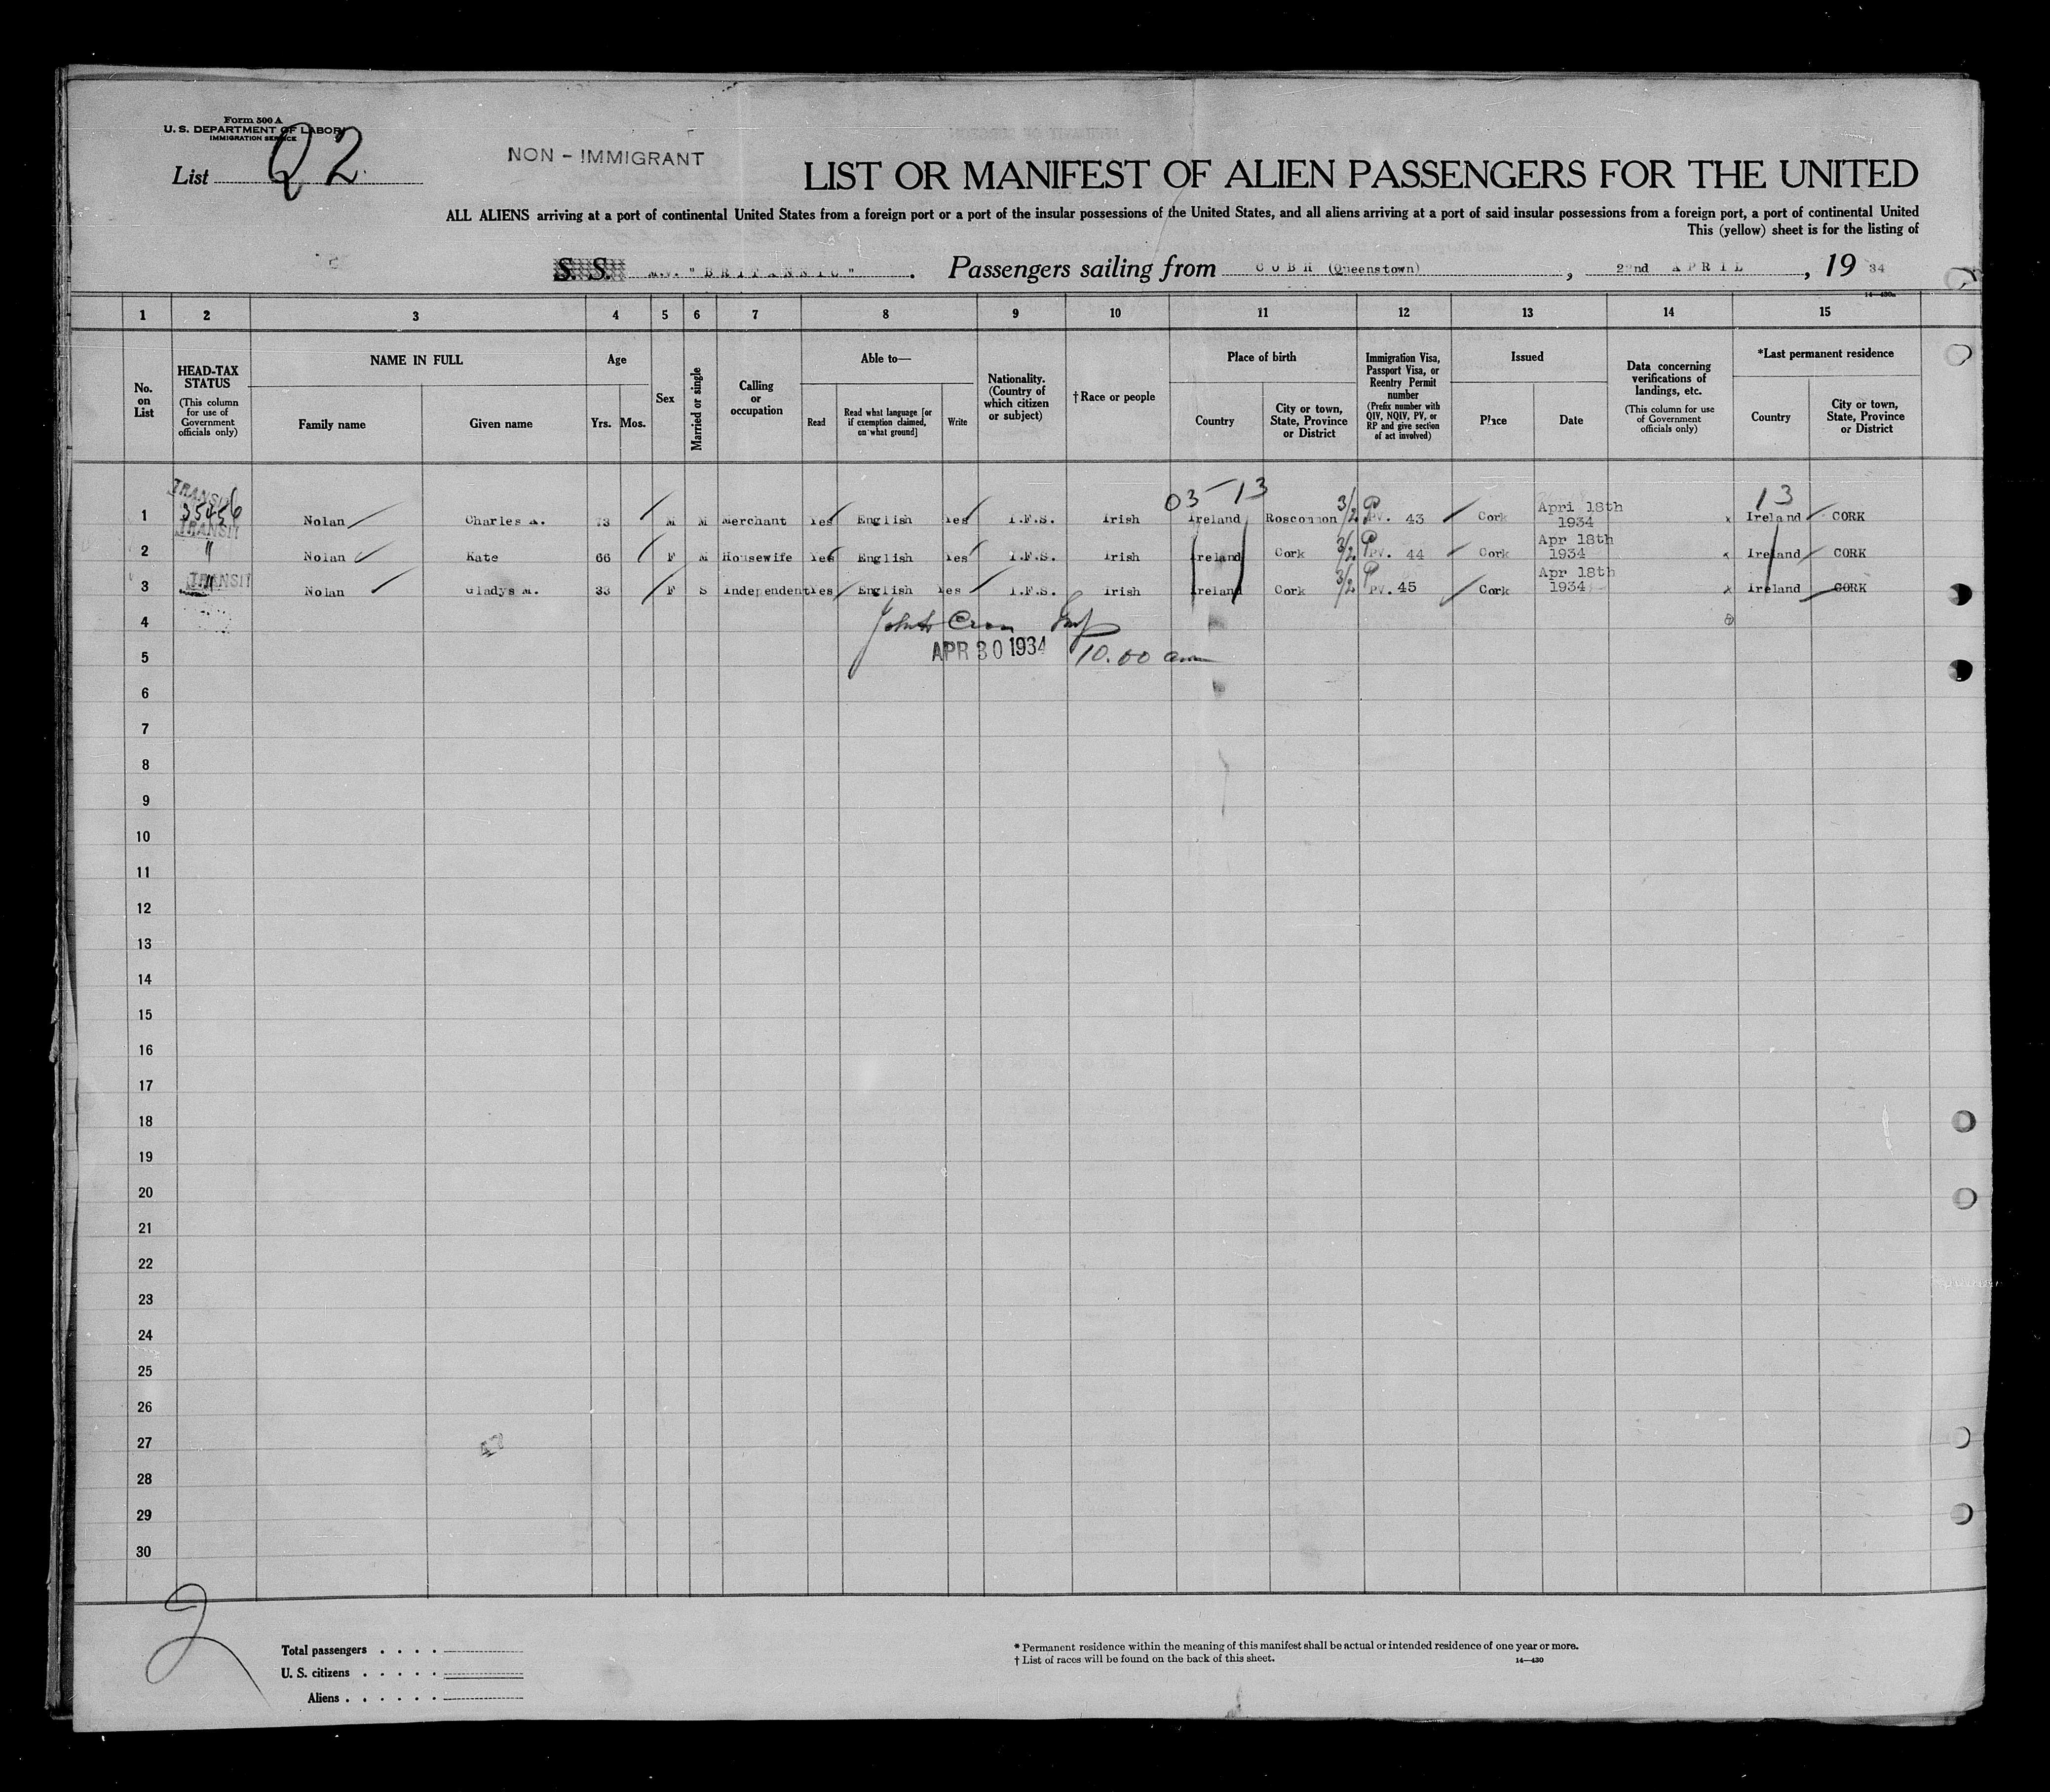 Form 500 A
U. S. DEPARTMENT OF LABOR
IMMIGRATION SERVICE
List 22
NON - IMMIGRANT
LIST OR MANIFEST OF ALIEN PASSENGERS FOR THE UNITED
ALL ALIENS arriving at a port of continental United States from a foreign port or a port of the insular possessions of the United States, and all aliens arriving at a port of said insular possessions from a foreign port, a port of continental United
This (yellow) sheet is for the listing of
S. S. M.V. "BRITANNIC". Passengers sailing from COBH (Queenstown), 22nd APRIL, 19 34
14—430a
1 2 3 4 5 6 7 8 9 10 11 12 13 14 15
No. on List
HEAD-TAX STATUS (This column for use of Government officials only)
NAME IN FULL Family name Given name
Age Yrs. Mos.
Sex
Married or single
Calling or occupation
Able to— Read Read what language [or if exemption claimed, on what ground] Write
Nationality. (Country of which citizen or subject)
†Race or people
Place of birth Country City or town, State, Province or District
Immigration Visa, Passport Visa, or Reentry Permit number (Prefix number with QIV, NQIV, PV, or RP and give section of act involved)
Issued Place Date
Data concerning verifications of landings, etc. (This column for use of Government officials only)
*Last permanent residence Country City or town, State, Province or District
03-13 13
1 TRANSIT 35456 TRANSIT Nolan Charles A. 73 M M Merchant Yes English Yes I.F.S. Irish Ireland Roscommon 3/2 P PV. 43 Cork Apri 18th 1934 x Ireland CORK
2 " Nolan Kate 66 F M Housewife Yes English Yes I.F.S. Irish Ireland Cork 3/2 P PV. 44 Cork Apr 18th 1934 x Ireland CORK
3 TRANSIT " Nolan Gladys M. 33 F S Independent Yes English Yes I.F.S. Irish Ireland Cork 3/2 P PV. 45 Cork Apr 18th 1934 x Ireland CORK
4
5 APR 30 1934 10.00 am
6
7
8
9
10
11
12
13
14
15
16
17
18
19
20
21
22
23
24
25
26
27
28
29
30
2
Total passengers
U. S. citizens
Aliens
* Permanent residence within the meaning of this manifest shall be actual or intended residence of one year or more.
† List of races will be found on the back of this sheet.
14—430